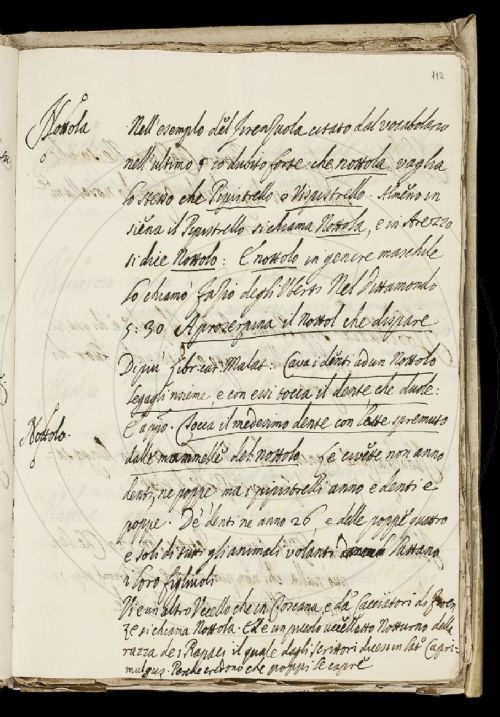 112
Nottola
Nell'esemplo del Firenzuola citato dal vocabolario
nell'ultimo § io dubito forte che nottola vaglia
lo stesso che Pipistrello o Vispistrello. Almeno in
siena il Pipistrello si chiama Nottola, e in Arezzo
si dice Nottolo: E nottolo in genere maschile
lo chiamò fazio degli Uberti Nel Dittamondo
5:30 A proserpina il nottol che dispare
Di più Libr: cur: Malat: Cava i denti ad un Nottolo
legagli insieme, e con essi tocca il dente che duole:
E appo. Tocca il medesimo dente con latte spremuto
Nottolo.
dalle mammelle del nottolo. Le civette non anno
denti, ne poppe ma i pipistrelli anno e denti e
poppe. De' denti ne anno 26 e delle poppe quattro
e soli di tutti gli animali volanti lattano
i loro figliuoli
Vi è un altro Uccello che in Toscana, e da' Cacciatori di Firen
ze si chiama Nottola. Ed è un piccolo uccelletto Notturno della
razza de i Rapaci il quale dagli Scrittori dicesi in lat: Capri-
mulgus. Perche credono che poppi le capre